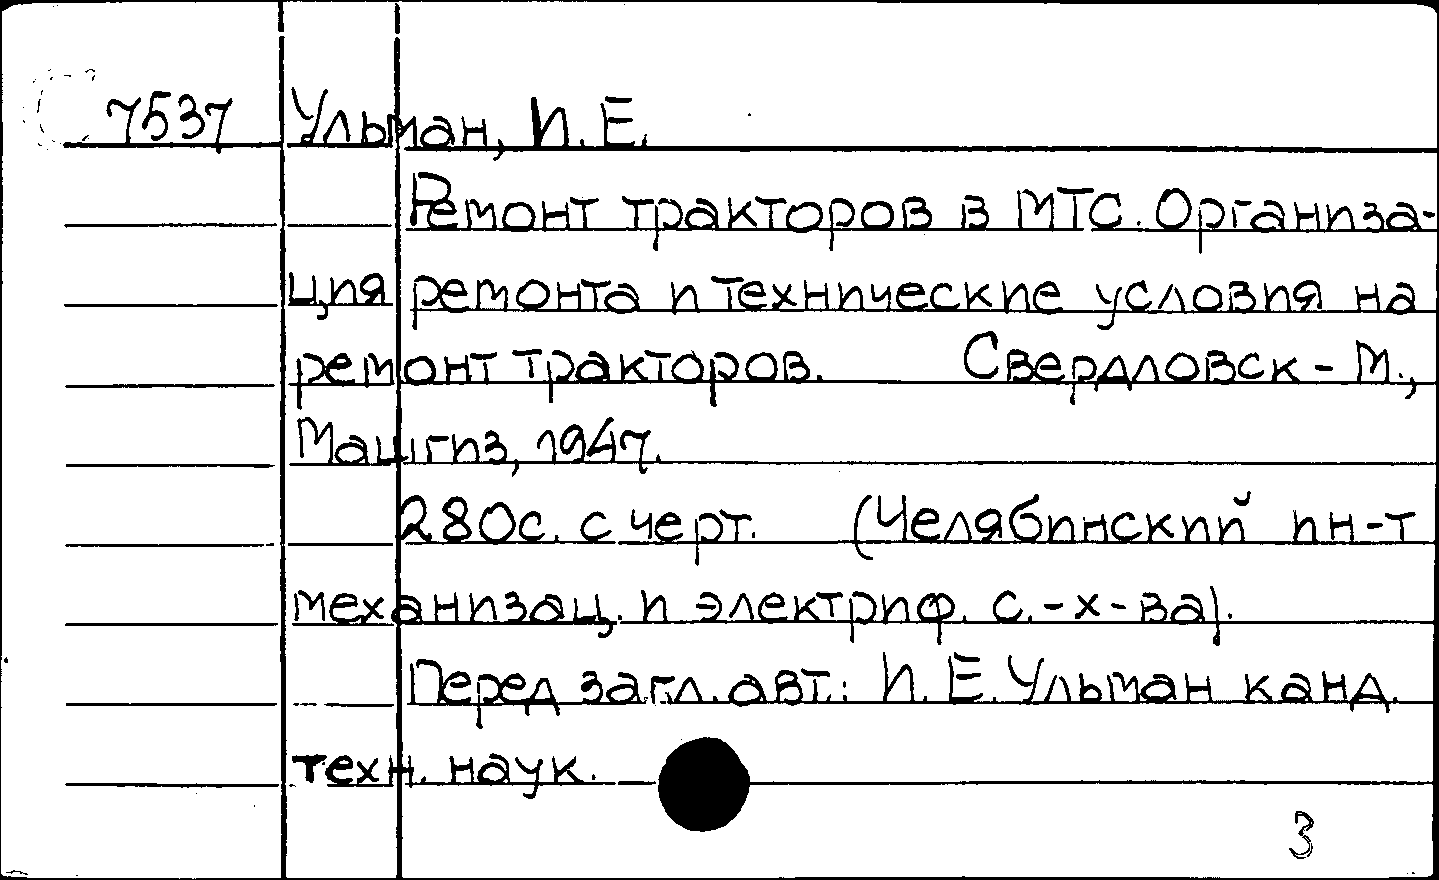 7537 Ульман, И. Е.
Ремонт тракторов в МТС. Организа-
ция ремонта и технические условия на
ремонт тракторов. Свердловск - М.,
Машгиз, 1947.
280с. с черт. (Челябинский ин-т
механизац. и электриф. с.-х-ва).
Перед загл. авт.: И. Е. Ульман канд.
техн. наук.
3